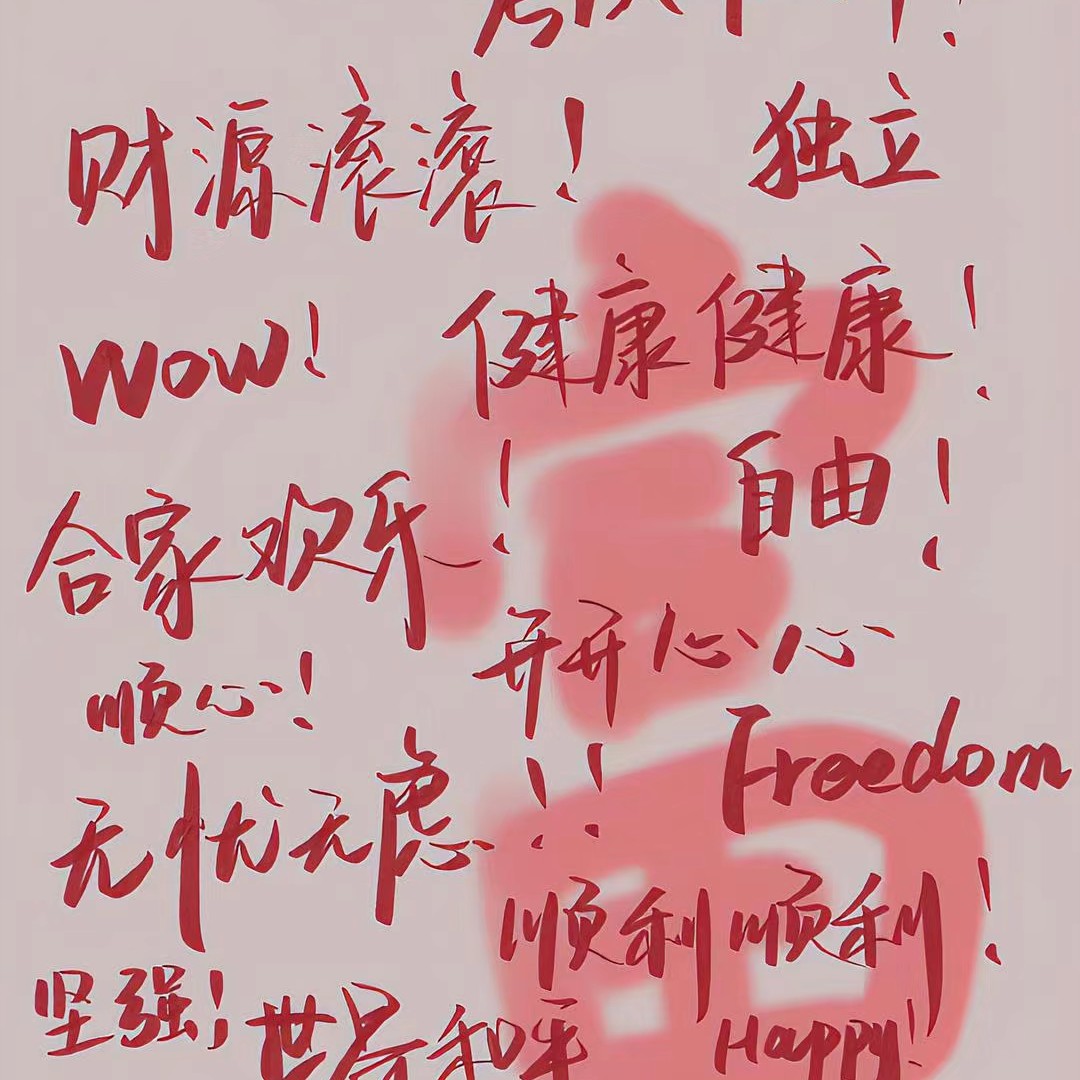 财源滚滚！
独立
wow!
健康健康！
合家欢乐！
自由！
开开心心
顺心！
Freedom
无忧无虑！！
顺利顺利！
坚强！
世界和平
Happy!
富